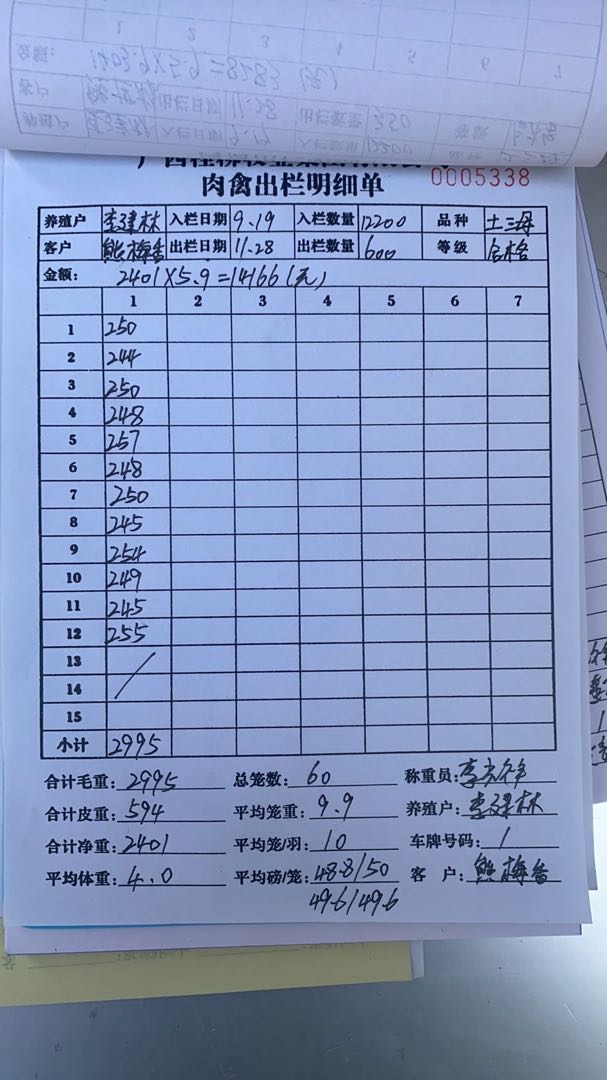 肉禽出栏明细单 0005338
养殖户 李建林 入栏日期 9.19 入栏数量 12200 品种 土三母
客户 熊梅香 出栏日期 11.28 出栏数量 600 等级 合格
金额: 2401×5.9=14166(元)
1 2 3 4 5 6 7
1 250
2 244
3 250
4 248
5 257
6 248
7 250
8 245
9 254
10 249
11 245
12 255
13
14
15
小计 2995
合计毛重: 2995 总笼数: 60 称重员:
合计皮重: 594 平均笼重: 9.9 养殖户: 李建林
合计净重: 2401 平均笼/羽: 10 车牌号码: 1
平均体重: 4.0 平均磅/笼: 48.8/50 客户: 熊梅香
49.6/49.6